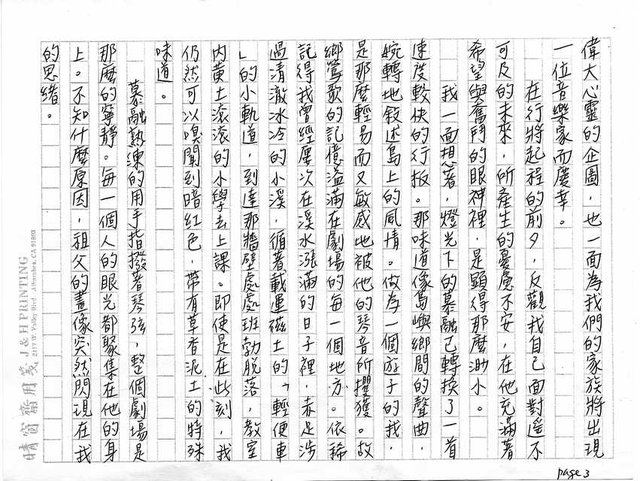 偉大心靈的企圖，也一面為我們的家族將出現
一位音樂家而慶幸。
在行將起程的前夕，反觀我自己面對遙不
可及的未來，所產生的憂慮不安，在他充滿著
希望與奮鬥的眼神裡，是顯得那麼渺小。
我一面想著，燈光下的慕融已轉換了一首
速度較快的行板。那味道像島嶼鄉間的聲曲，
婉轉地敘述島上的風情。做為一個遊子的我，
是那麼輕易而又敏感地被他的琴音所攫獲。故
鄉鶯歌的記憶溢滿在劇場的每一個地方。依稀
記得我曾經屢次在溪水漲滿的日子裡，赤足涉
過清澈冰冷的小溪，循著載運磁土的「輕便車
」的小軌道，到達那牆壁處處班勃脫落，教室
內黃土滾滾的小學去上課。即使是在此刻，我
仍然可以嗅聞到暗紅色，帶有草香泥土的特殊
味道。
慕融熟練的用手指撥著琴弦，整個劇場是
那麼的寧靜。每一個人的眼光都聚集在他的身
上。不知什麼原因，祖父的畫像突然閃現在我
的思緒。
晴窗齋用箋 J & H PRINTING
2117 W. Valley Blvd., Alhambra, CA 91803
page 3